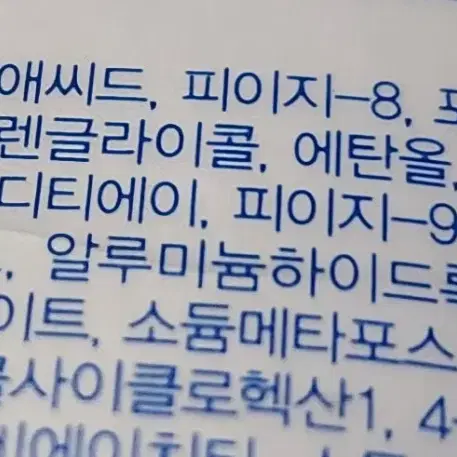 애씨드, 피이지-8,
렌글라이콜, 에탄올,
디티에이, 피이지-9
알루미늄하이드록
이트, 소듐메타포스
사이클로헥산1, 4-